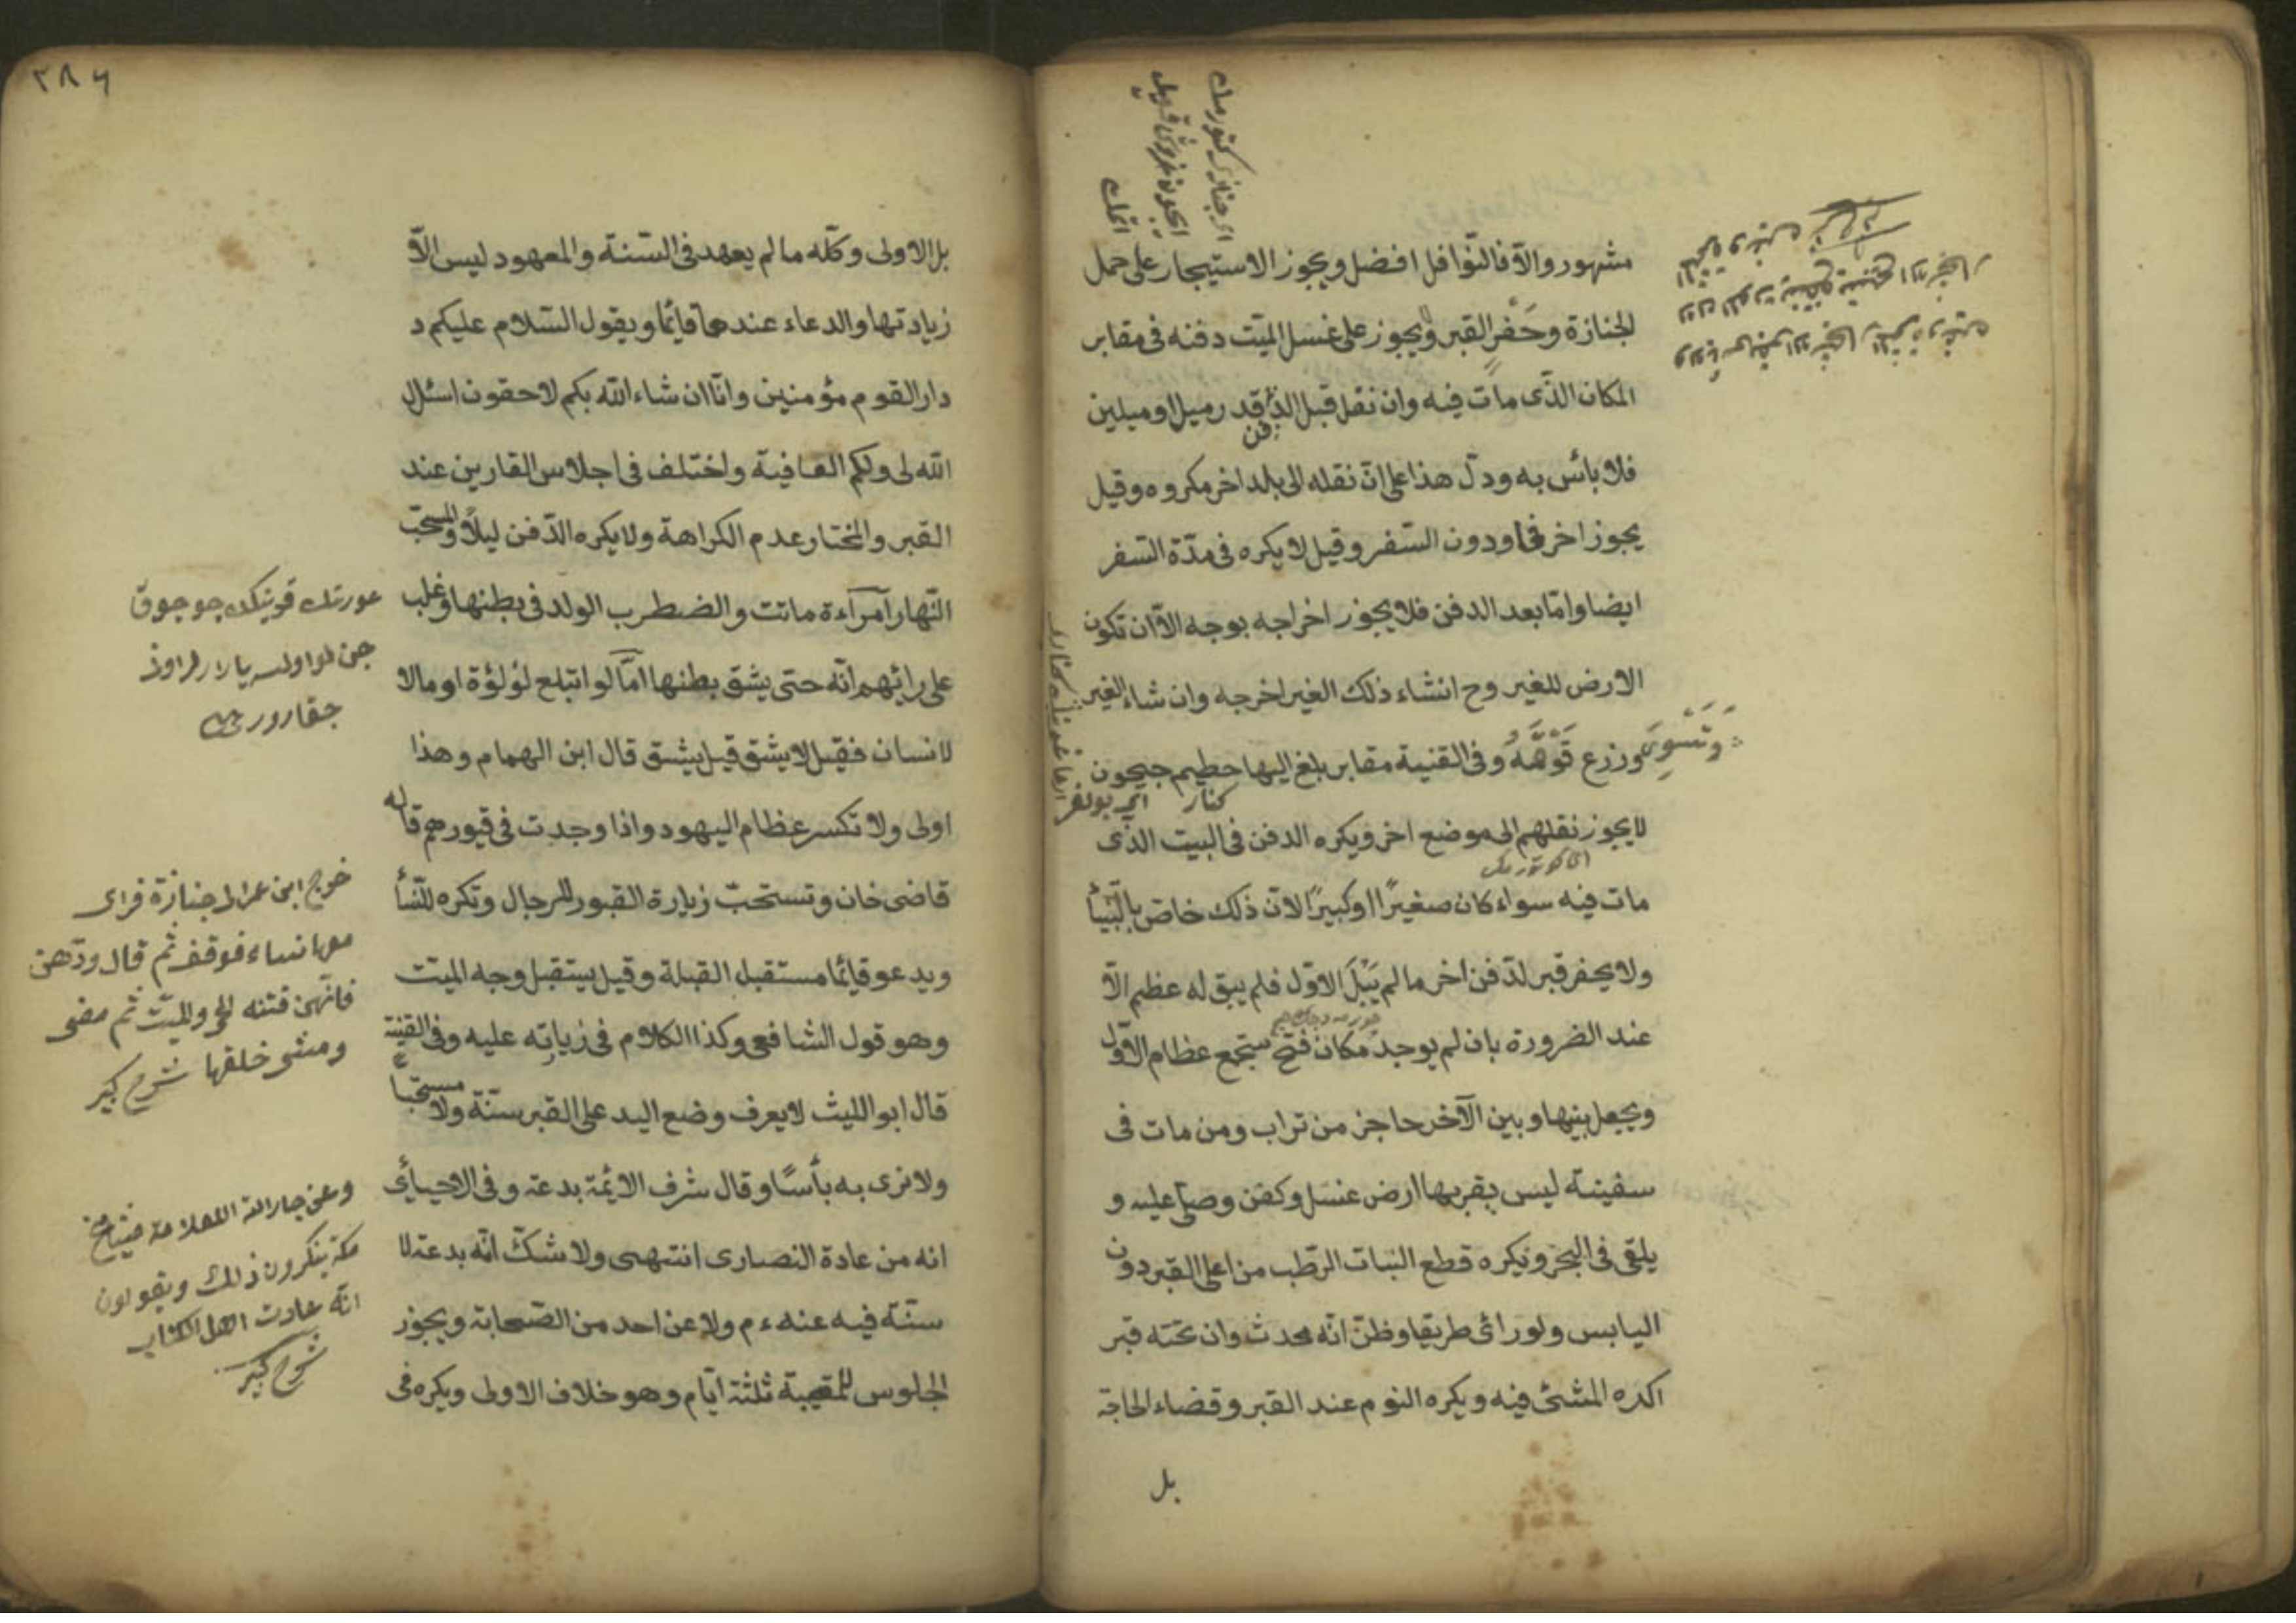 مشهور والآ فالنوافل افضل ويجوز الاستيجار على حمل
الجنازة وحَفْر القبر ويجوز على غسل الميت دفنه فى مقابر
المكان الذى مات فيه وان نقل قبل الدفن قدر ميل او ميلين
فلا بائس به ودل هذا على ان نقله الى بلد اخر مكروه وقيل
يجوز اخر فما ودون السفر وقيل لا يكره فى مدّة السفر
ايضا وامّا بعد الدفن فلا يجوز اخراجه بوجه الاّ ان تكون
الارض للغير وح انشاء ذلك الغير اخرجه وان شاء الغير
وتسوى وزرع فوقه وفى القنية مقابر بلغ اليها حطيم جيحون
كنار
لا يجوز نقلهم الى موضع اخر ويكره الدفن فى البيت الذى
مات فيه سواء كان صغيرًا او كبيرًا لان ذلك خاصّ بالنبيأ
ولا يحفر قبر لدفن اخر ما لم يَبْلَ الاوّل فلم يبق له عظيم الاّ
عند الضرورة بان لم يوجد مكان فتح ستجمع عظام الاوّل
ويجعل بينها وبين الآخر حاجز من تراب ومن مات فى
سفينة ليس بقربها ارض غسل وكفن وصلّى عليه و
يلقى فى البحر ويكره قطع النبات الرّطب من اعلى القبر دون
اليابس ولو رائ طريقا وظنّ انّه محدث وان تحته قبر
اكره المشئ فيه ويكره النوم عند القبر وقضاء الحاجة
بل
٢٨٦
بل الاولى وكلّه ما لم يعهد فى السّنة والمعهود ليس الاّ
زيادتها والدعاء عندها قايمًا ويقول السّلام عليكم د
دار القوم مؤمنين وانّا ان شاء الله بكم لاحقون اسئل
الله لى ولكم العافية واختلف فى اجلاس القارين عند
القبر والمختار عدم الكراهة ولا يكره الدّفن ليلاً والمستحبّ
النّهار امرآءة ماتت والضطرب الولد فى بطنها وغلب
على رائيهم انّه حتى يشقّ بطنها امّا لو ابتلع لؤلؤة او مالا
لانسان فقيل لا يشق قيل يشق قال ابن الهمام وهذا
اولى ولا تكسر عظام اليهود واذا وجدت فى قبورهم قاله
قاضى خان وتستحبّ زيارة القبور للرجال وتكره للنّسأ
ويدعو قايمًا مستقبل القبلة وقيل يستقبل وجه الميّت
وهو قول الشافعى وكذا الكلام فى زياته عليه وفى القنية
قال ابو الليث لا يعرف وضع اليد على القبر سنّة ولا مستحبّاً
ولا نرى به بأسًا وقال شرف الائمّة بدعة وفى الاحيائ
انه من عادة النصارى انتهى ولا شكّ انّه بدعة لا
سنّة فيه عنه ءم ولا عن احد من الصّحابة ويجوز
الجلوس للمصيبة ثلثة ايّام وهو خلاف الاولى ويكره فى
عورتك قرنيكده جوجوق
خرج ابن عمر الى جنازة فراى
معها نساء فوقف ثم قال ردّهن
فانّهن فتنه الحى والميّت ثم مضى
ومشى خلفها شرح كبير
وعن جار الله العلامة مشايخ
مكة ينكرون ذلك ويقولون
انّه عادت اهل الكتاب
شرح كبير